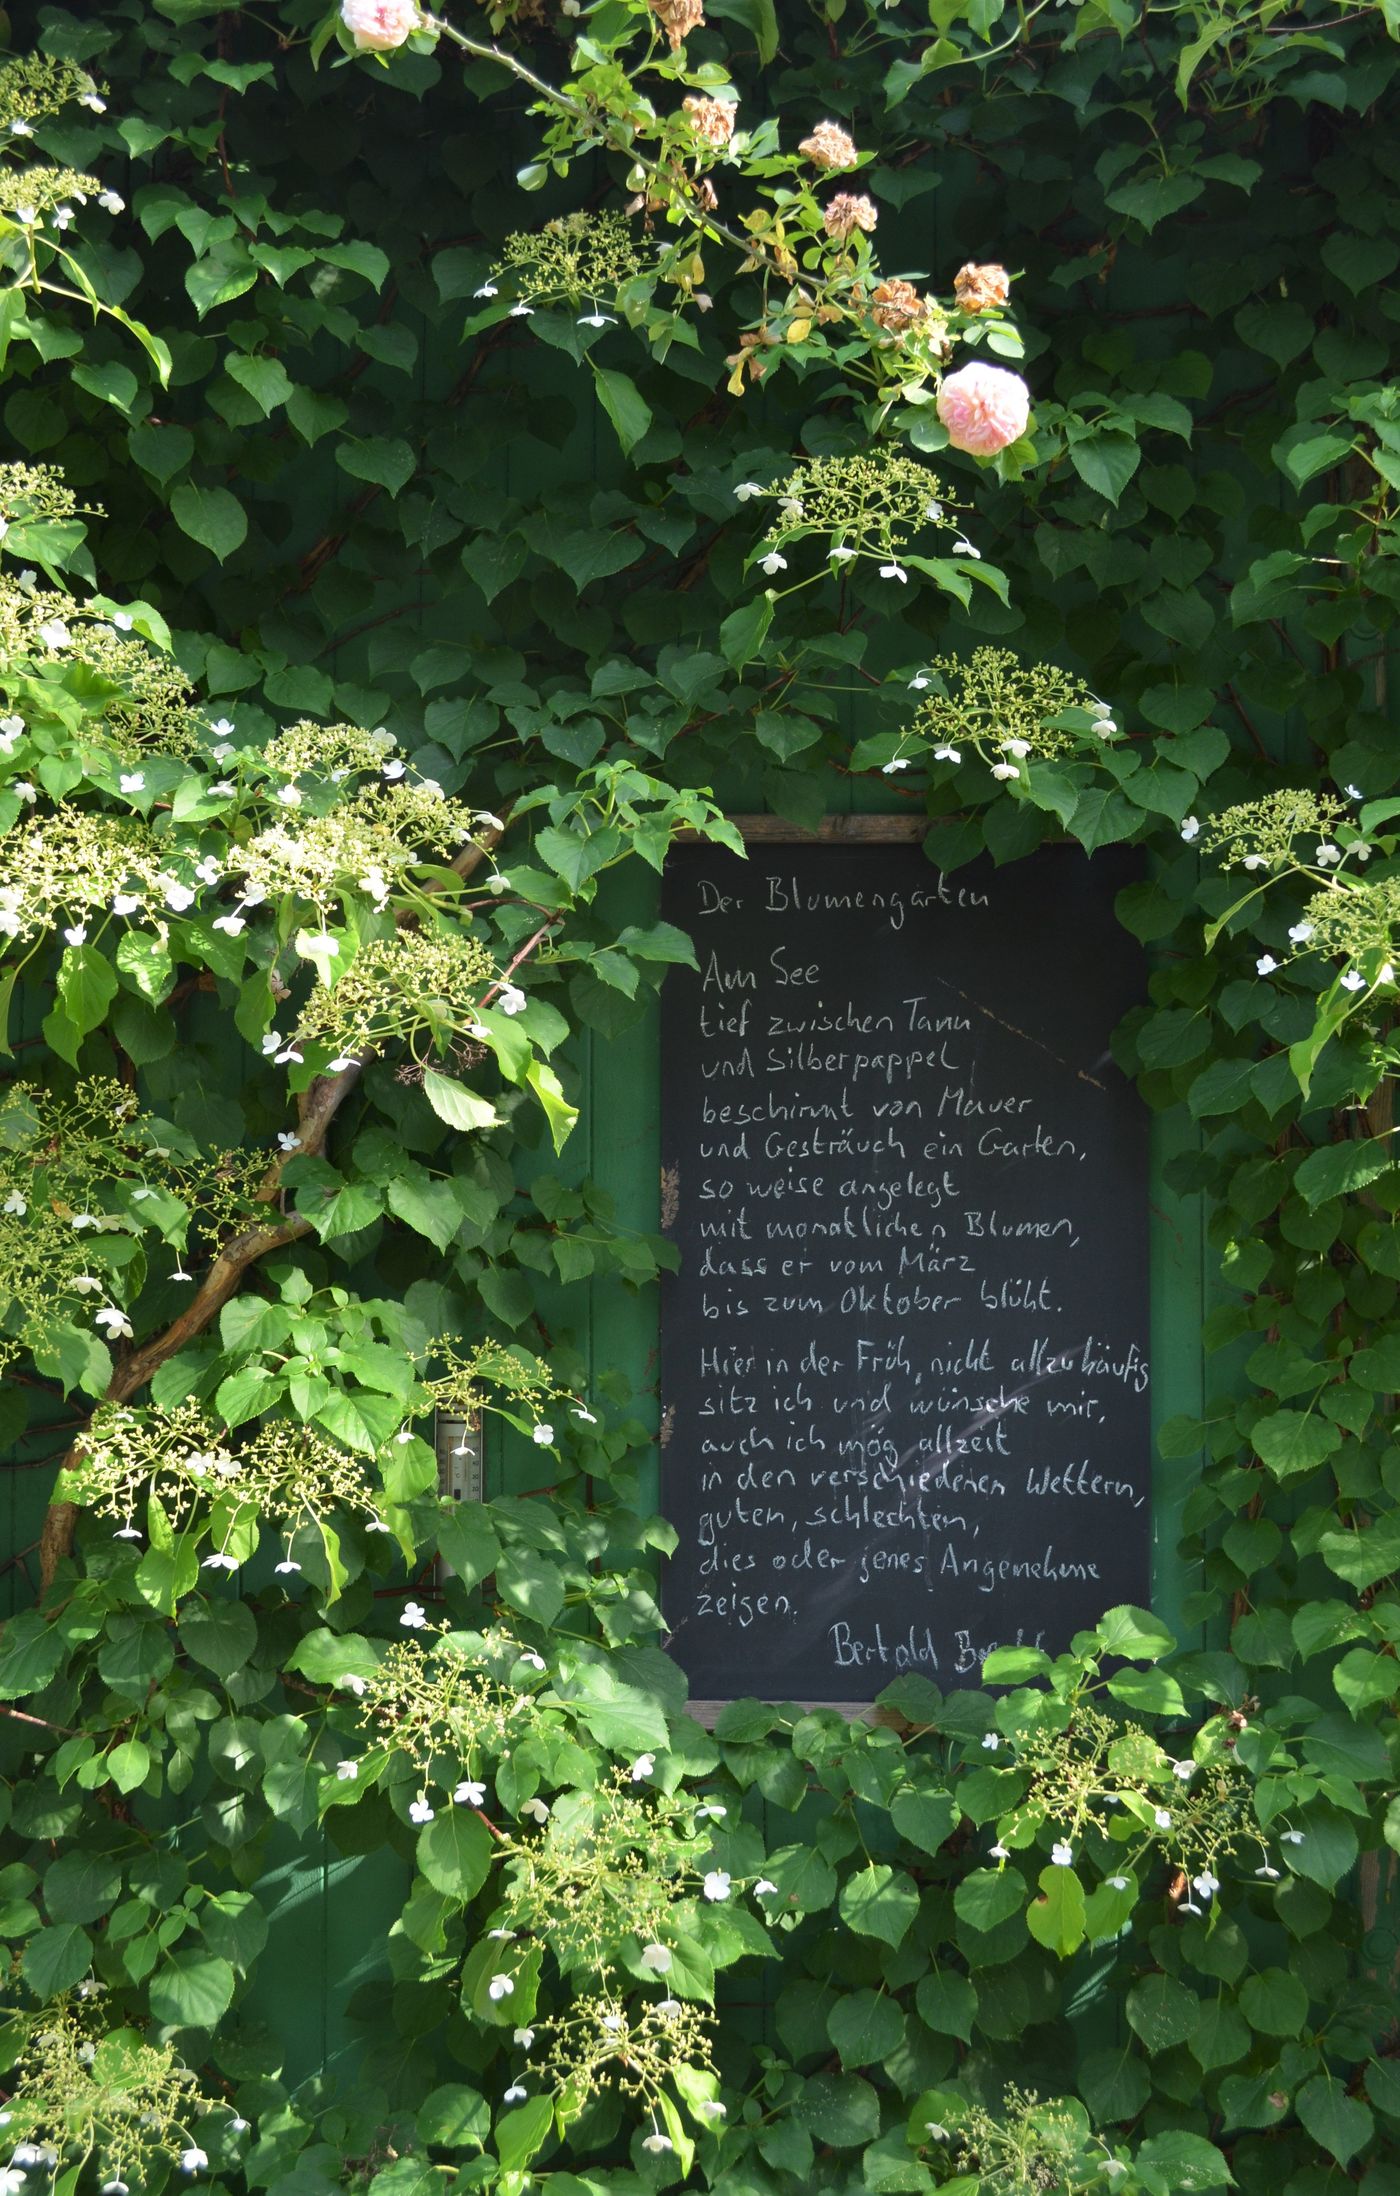 Der Blumengarten
Am See
tief zwischen Tann
und Silberpappel
beschirmt von Mauer
und Gesträuch ein Garten,
so weise angelegt
mit monatlichen Blumen,
dass er vom März
bis zum Oktober blüht.
Hier in der Früh, nicht allzu häufig
sitz ich und wünsche mir,
auch ich mög allzeit
in den verschiedenen Wettern,
guten, schlechten,
dies oder jenes Angenehme
zeigen.
Bertold